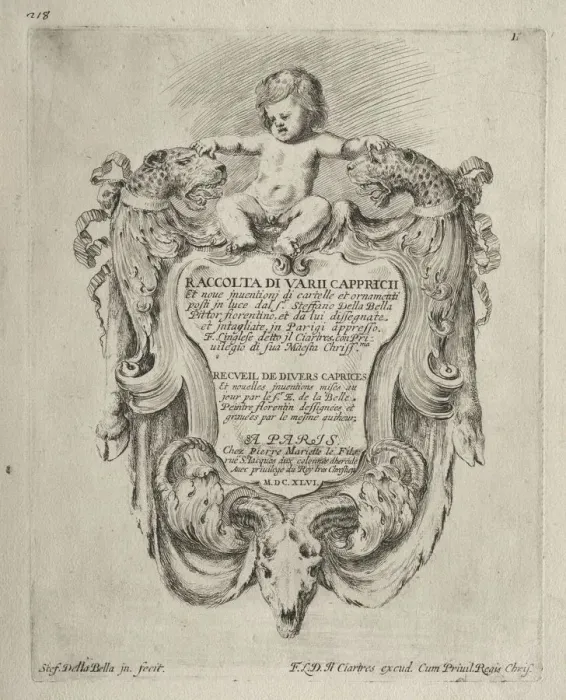 218
1.
RACCOLTA DI VARII CAPPRICII
Et noue jnuentionj di cartelle et ornamenti
posti in luce dal s.r Steffano Della Bella
Pittor fiorentino. et da lui dissegnate
et jntagliate, in Parigi appresso.
F. L'inglese detto jl Ciartres, con Pri-
uilegio di sua Maesta Chriss.ma
RECVEIL DE DIVERS CAPRICES
Et nouelles jnuentions mises au
jour par le s.r E. de la Belle.
Peintre florentin dessignées et
grauées par le mesme autheur,
A PARIS
Chez Pierre Mariette le Filz
rue S. Iacques aux colonnes dhercule
Auec priuilege du Roy tres Chrestien
M.DC.XLVI.
Stef. Della Bella jn. fecit.
F.L.D. Il Ciartres excud. Cum Priuil. Regis Chris.